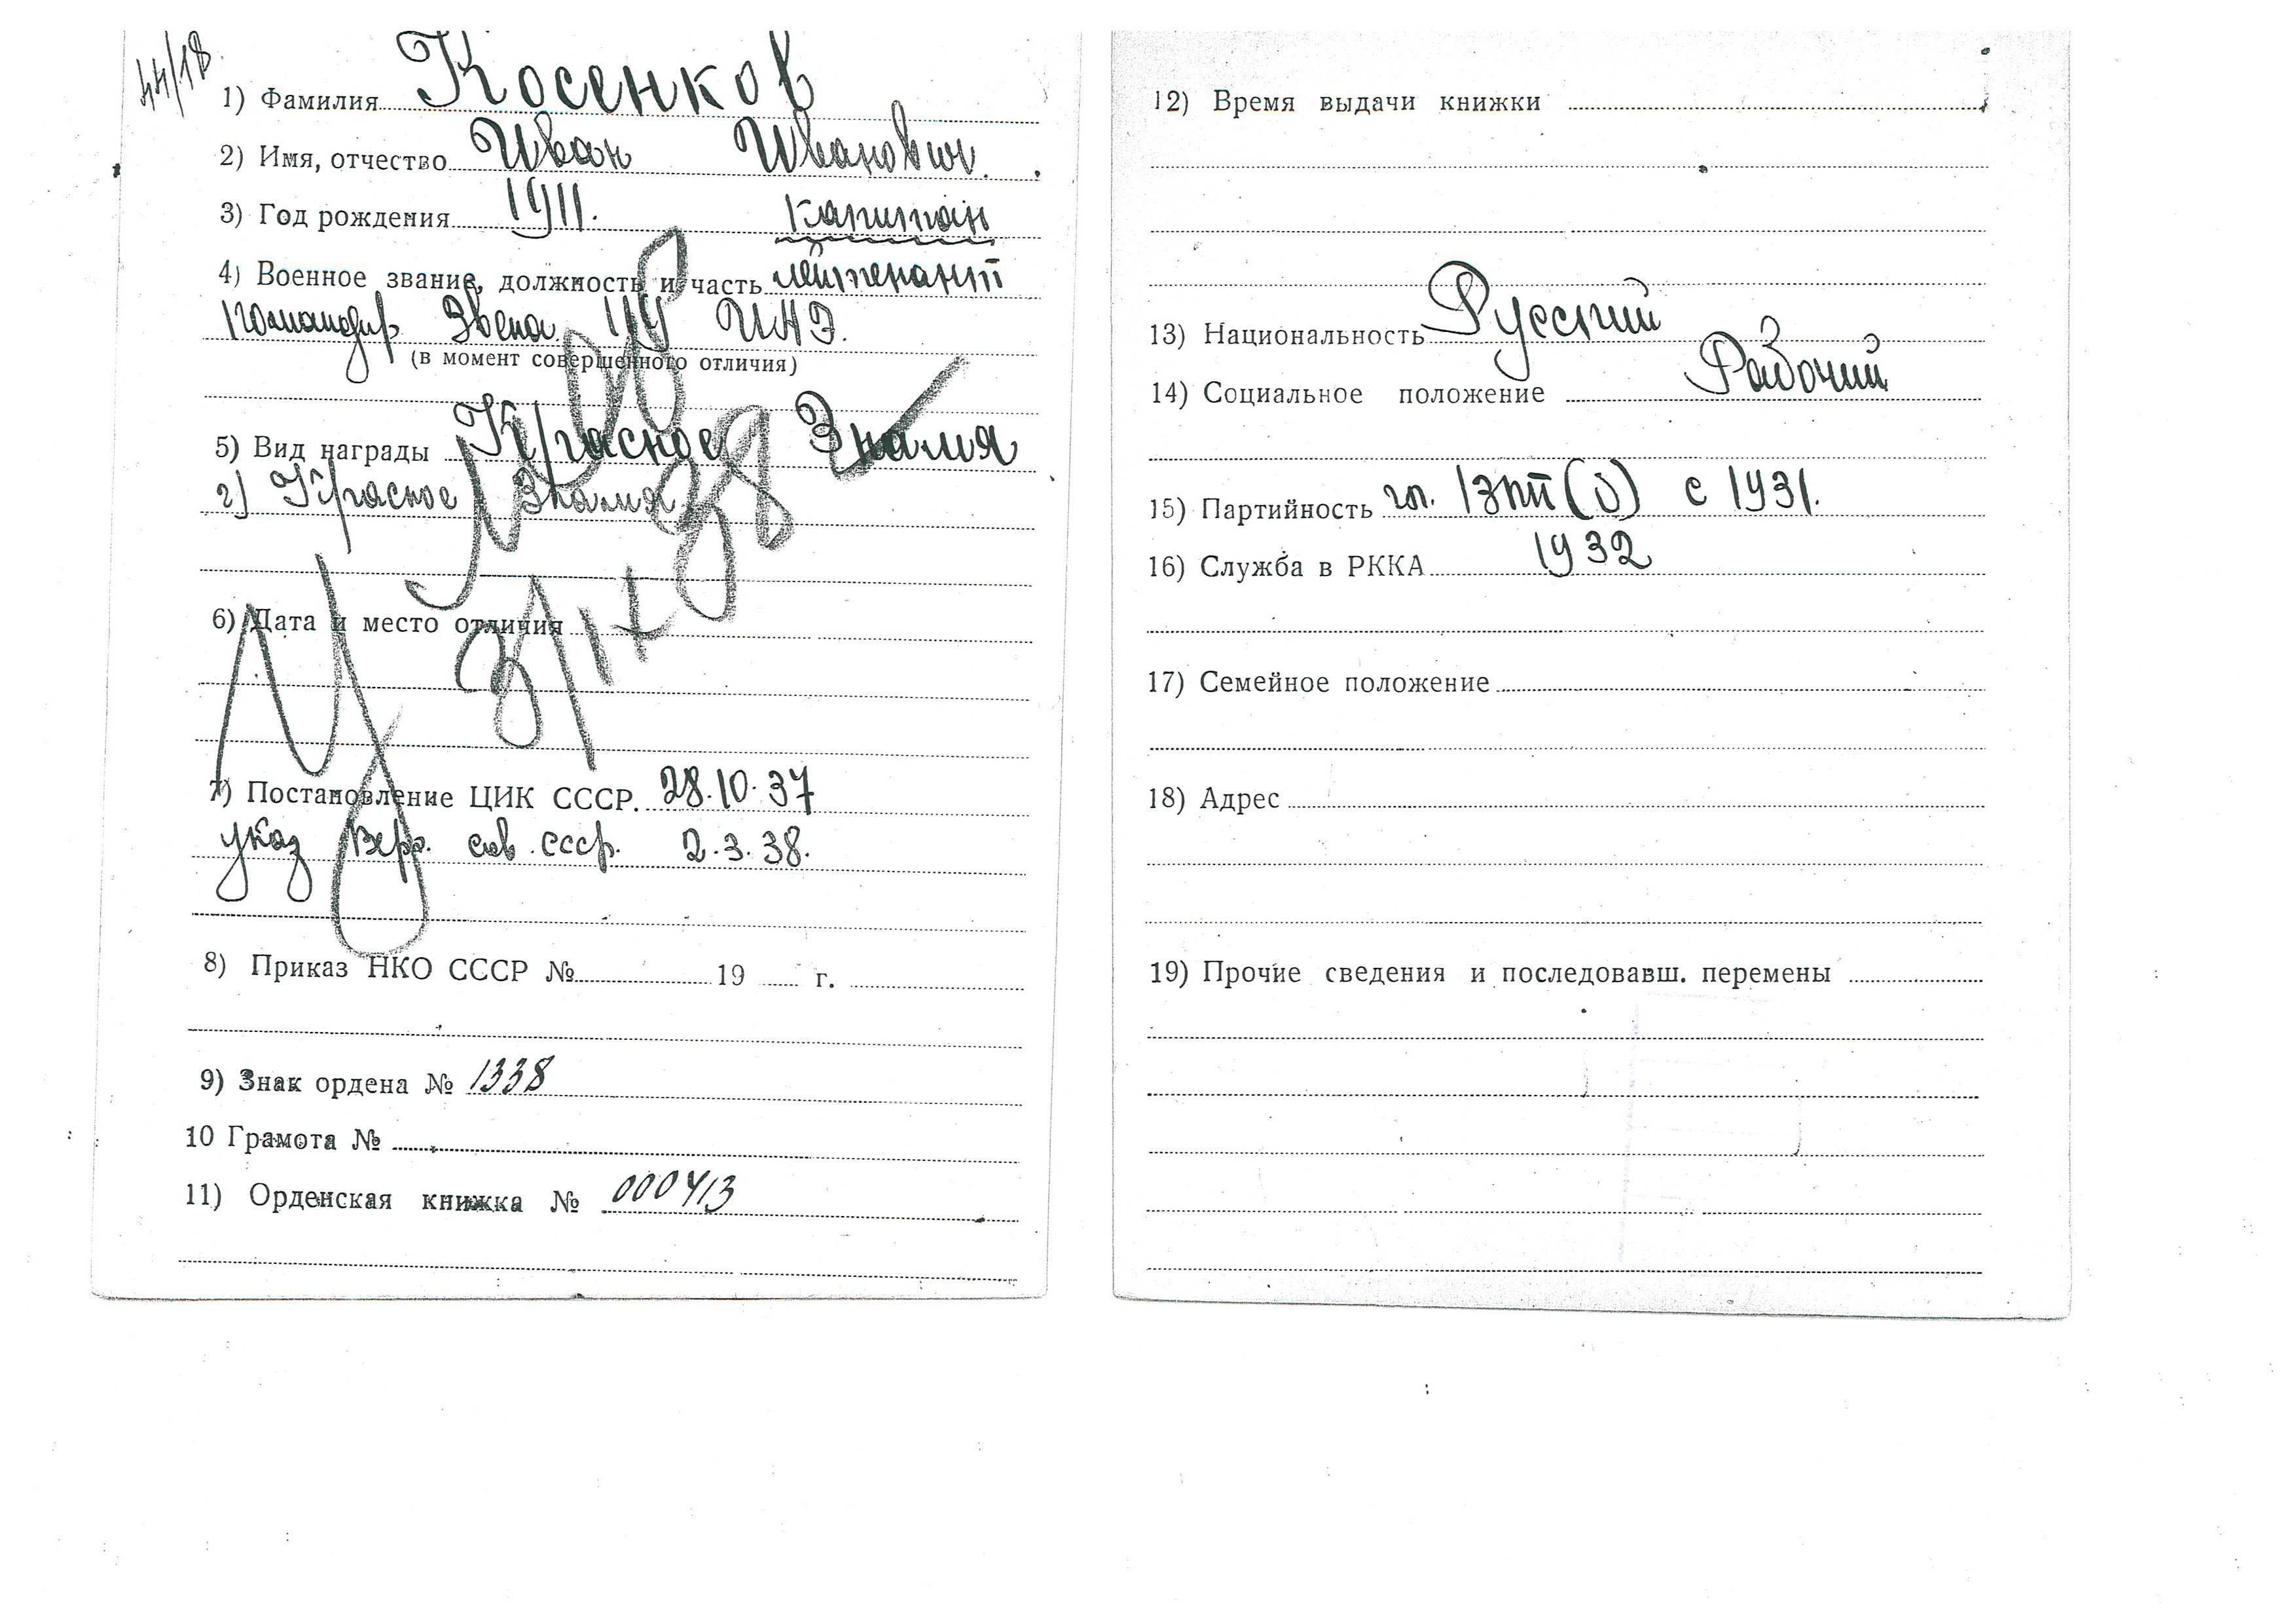 44/18
1) Фамилия Косенков
2) Имя, отчество Иван Иванович.
3) Год рождения 1911. капитан
4) Военное звание, должность и часть лейтенант
командир звена ИАЭ.
(в момент совершенного отличия)
5) Вид награды Красное Знамя
2) Красное Знамя
6) Дата и место отличия
7) Постановление ЦИК СССР. 28.10.37
указ Верх. сов. ссср. 2.3.38.
8) Приказ НКО СССР № 19 г.
9) Знак ордена № 1338
10 Грамота №
11) Орденская книжка № 000413
12) Время выдачи книжки
13) Национальность Русский
14) Социальное положение Рабочий
15) Партийность чл. ВКП(б) с 1931.
16) Служба в РККА 1932
17) Семейное положение
18) Адрес
19) Прочие сведения и последовавш. перемены